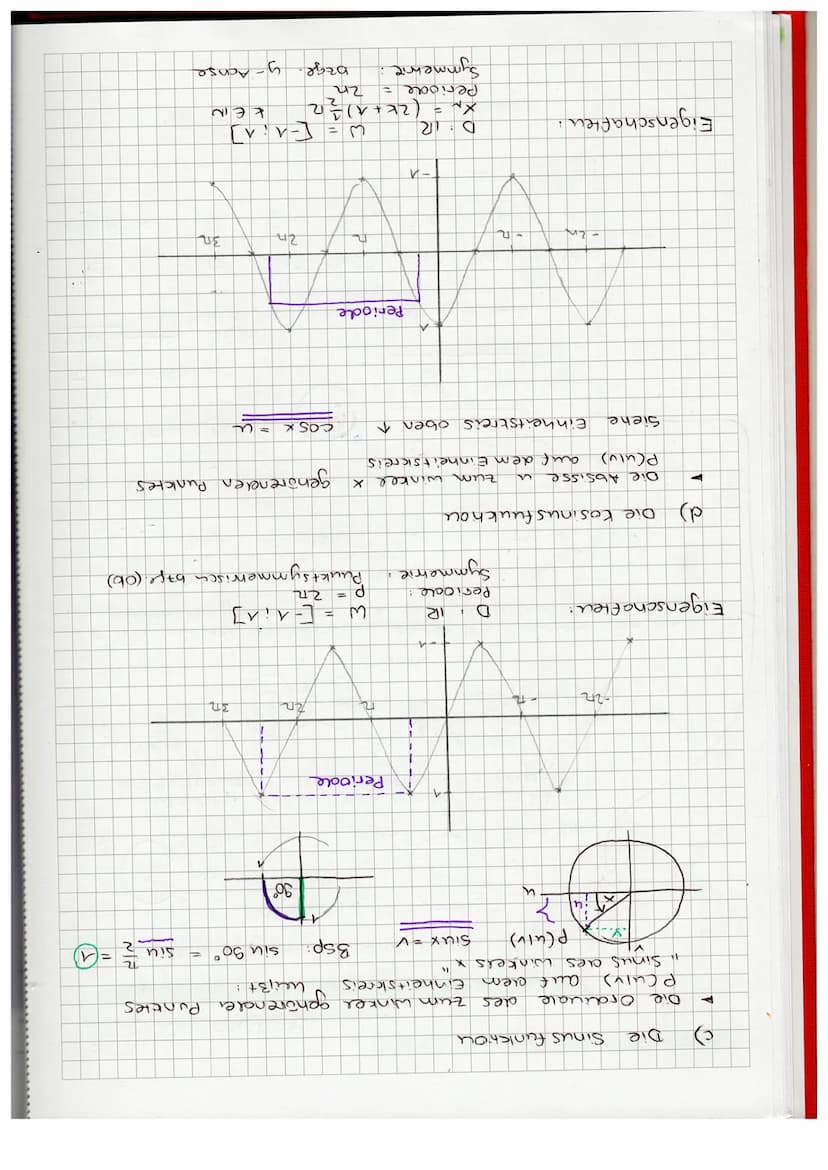 c) Die Sinusfunktion
► Die Ordinate des zum Winkel gehörender Punktes
P(u|v) auf dem Einheitskreis heißt:
"Sinus des Winkels x"
P(u|v) sinx = v Bsp: sin 90° = sin π/2 = 1
v
v
x
u
u
1
30°
1
Periode
1
-2π -π π 2π 3π
-1
Eigenschaften: D: ℝ W = [-1;1]
Periode: p = 2π
Symmetrie: Punktsymmetrisch bzgl. (0|0)
d) Die Kosinusfunktion
► Die Absisse u zum Winkel x gehörenden Punktes
P(u|v) auf dem Einheitskreis
Siehe Einheitskreis oben ↑ cosx = u
Periode
1
-2π -π π 2π 3π
-1
Eigenschaften: D: ℝ W = [-1;1]
x_N = (2k+1)½π k∈ℕ
Periode = 2π
Symmetrie: bzgl. y-Achse